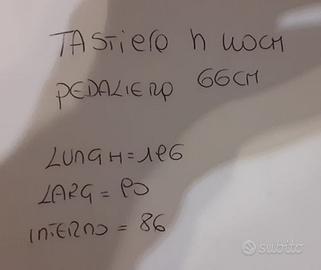 TASTIERA h 40CM
PEDALIERA 66CM
LUNGH=196
LARG = 90
INTERNO = 86
subito